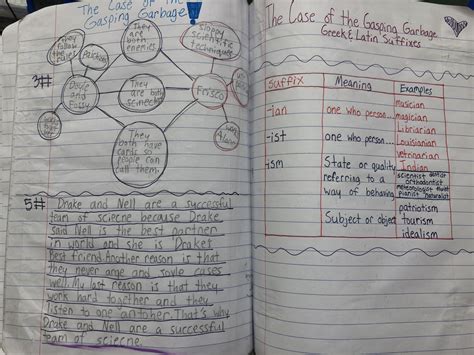 The Case of the
Gasping Garbage
3##
They
follow
the
They
are
both
enemies.
Sloppy
scientific
techniques
Drake
and
They
are both
scinece
Frisco
They
both have
cards so
people can
call them.
5## Drake and Nell are a successful
team of sciecne because Drake
said Nell is the best partner
in world and she is Drake's
Best friend. Another reason is that
they never and cases
well. My last reason is that they
work hard together and they
listen to one antoher. That's why
Drake and Nell are a successful
team of sciecne.
The Case of the Gasping Garbage
Greek & Latin Suffixes
Suffix Meaning Examples
-ian one who person... musician
magician
Librarian
-ist one who person... Louisionian
vetrinarian
Indian
-ism State or quality scientist dentist
referring to a orthodontist
way of behaving
pianist naturalist
patriotism
Subject or object tourism
idealism